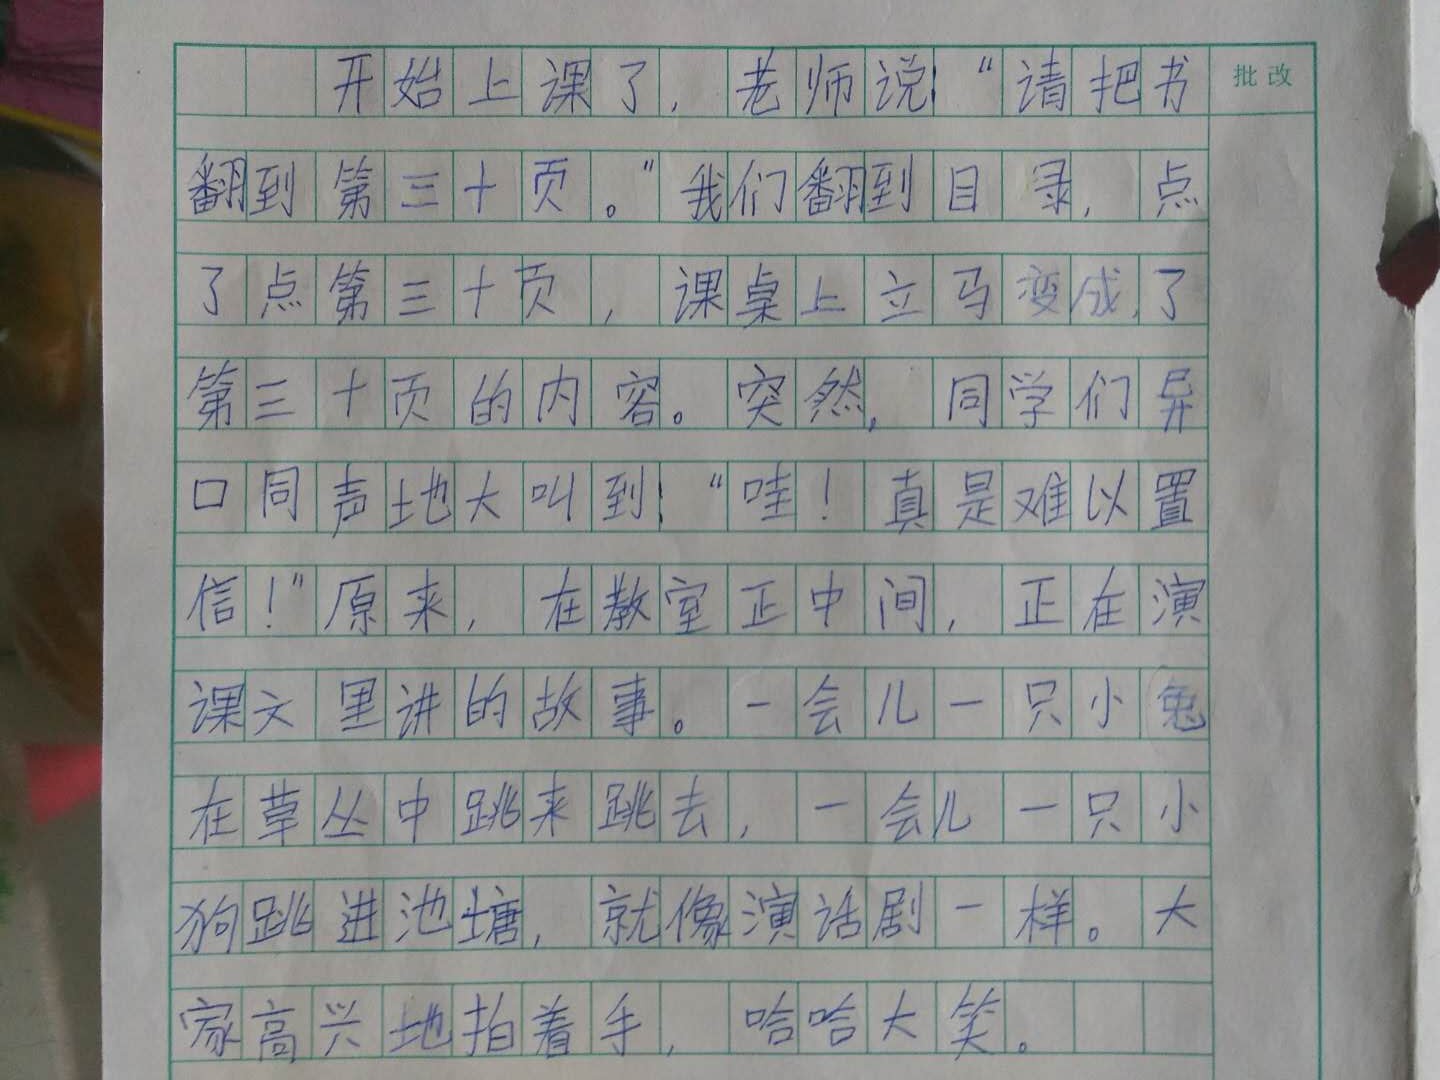 开始上课了，老师说：“请把书
批改
翻到第三十页。”我们翻到目录，点
了点第三十页，课桌上立马变成了
第三十页的内容。突然，同学们异
口同声地大叫到：“哇！真是难以置
信！”原来，在教室正中间，正在演
课文里讲的故事。一会儿一只小兔
在草丛中跳来跳去，一会儿一只小
狗跳进池塘，就像演话剧一样。大
家高兴地拍着手，哈哈大笑。